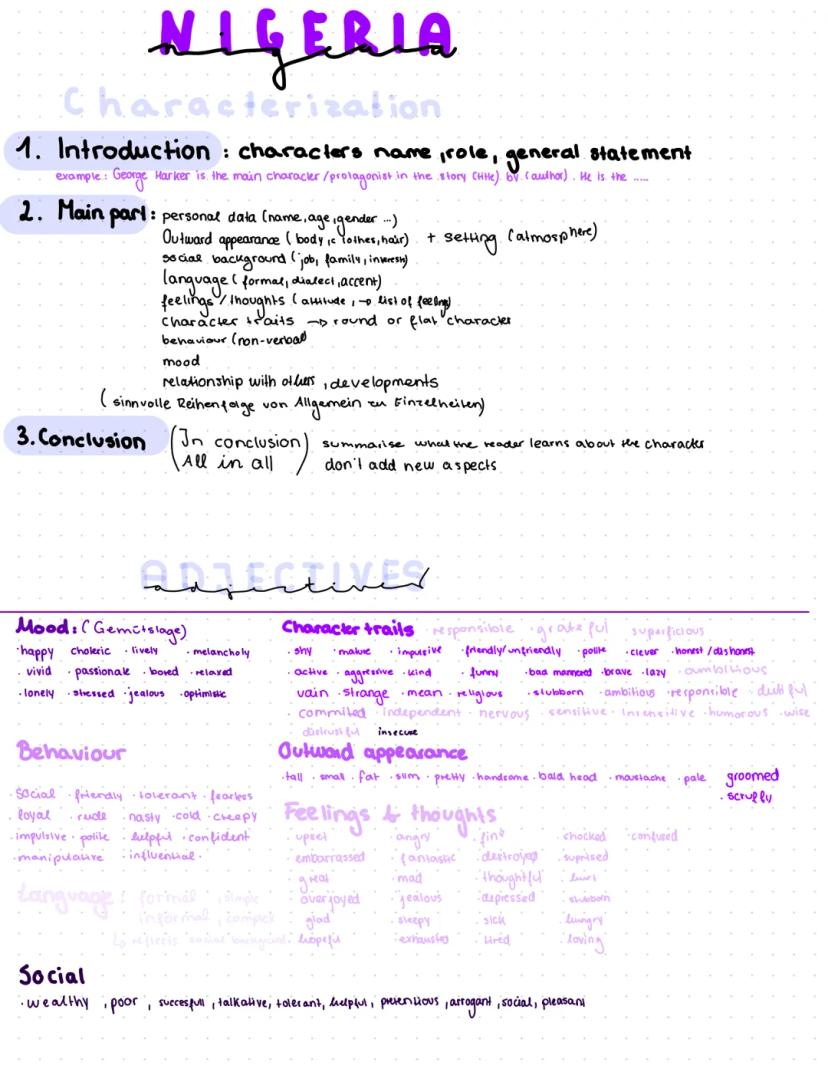 NIGERIA
nigeria
Characterization
1. Introduction : characters name, role, general statement
example: George Harker is the main character/protagonist in the story (title) by (author). He is the .....
2. Main part: personal data (name, age, gender ...)
Outward appearance (body, clothes, hair) + setting (atmosphere)
social background (job, family, interest)
language (formal, dialect, accent)
feelings/thoughts (attitude, → list of feeling)
character traits → round or flat character
behaviour (non-verbal)
mood
relationship with others, developments
(sinnvolle Reihenfolge von Allgemein zu Einzelheiten)
3. Conclusion (In conclusion) summarise what the reader learns about the character
All in all) don't add new aspects
ADJECTIVES
adjectives
Mood: (Gemütslage)
·happy choleric ·lively ·melancholy
·vivid ·passionate ·bored ·relaxed
·lonely ·stressed ·jealous ·optimistic
Character traits responsible ·grateful superficious
·shy ·mature ·impulsive ·friendly/unfriendly ·polite ·clever ·honest/dishonest
·active ·aggressive ·kind ·funny ·bad mannered ·brave ·lazy ·ambitious
vain ·strange ·mean ·religious ·stubborn ·ambitious ·responsible ·dutiful
·commited ·independent ·nervous ·sensitive ·insensitive ·humorous ·wise
distrustful insecure
Behaviour
·social ·friendly ·tolerant ·fearless
·loyal ·rude ·nasty ·cold ·creepy
·impulsive ·polite ·helpful ·confident
·manipulative ·influential.
Outward appearance
·tall ·small ·fat ·slim ·pretty ·handsome ·bald head ·moustache ·pale groomed
·scruffy
Feelings & thoughts
·upset ·angry ·fine ·chocked ·confused
·embarrassed ·fantastic ·destroyed ·suprised
·great ·mad ·thoughtful ·hurt
·overjoyed ·jealous ·depressed ·stubborn
·glad ·sleepy ·sick ·hungry
·hopeful ·exhausted ·tired ·loving
Language: formal, simple
informal, complex
↳ reflects social background
Social
·wealthy, poor, succesfull, talkative, tolerant, helpful, pretentious, arrogant, social, pleasant